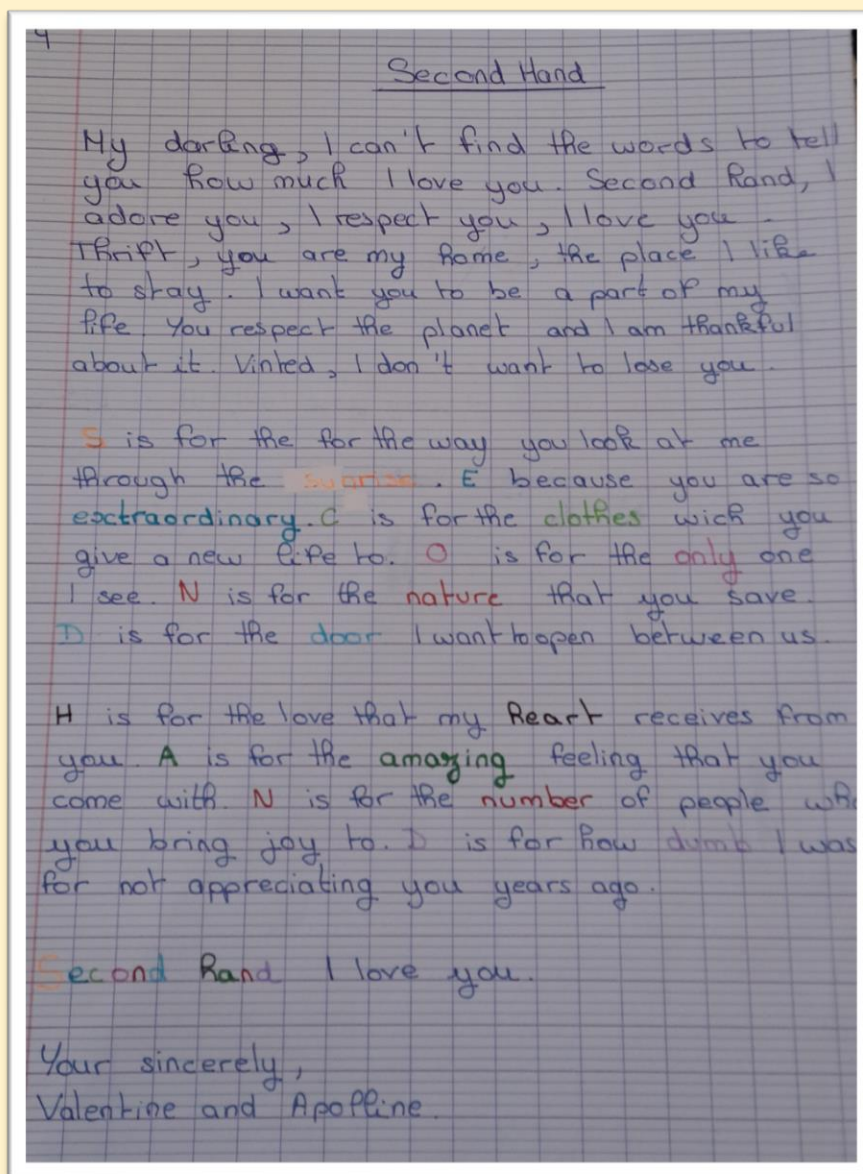 4
Second Hand
My darling, I can't find the words to tell
you how much I love you. Second hand, I
adore you, I respect you, I love you.
Thrift, you are my home, the place I like
to stay. I want you to be a part of my
life. You respect the planet and I am thankful
about it. Vinted, I don't want to lose you.
S is for the for the way you look at me
through the sunrise. E because you are so
exctraordinary. C is for the clothes wich you
give a new life to. O is for the only one
I see. N is for the nature that you save.
D is for the door I want to open between us.
H is for the love that my heart receives from
you. A is for the amazing feeling that you
come with. N is for the number of people who
you bring joy to. D is for how dumb I was
for not appreciating you years ago.
Second hand I love you.
Your sincerely,
Valentine and Apolline.